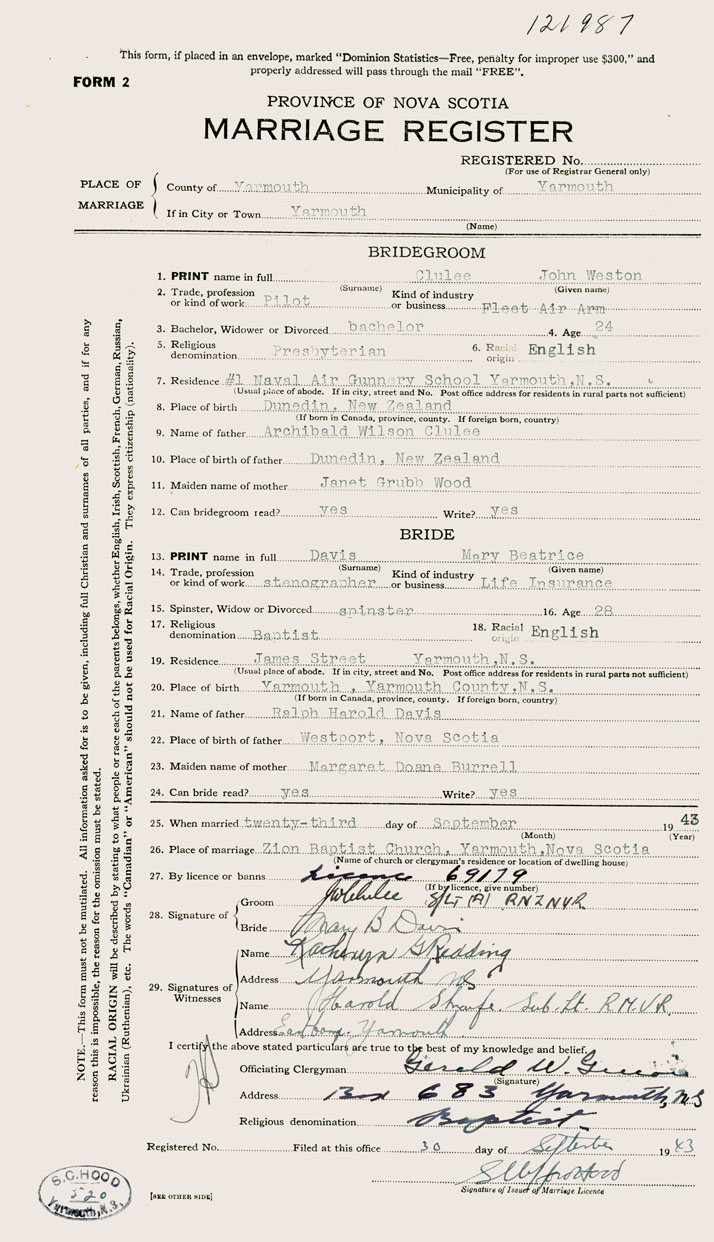 121987
This form, if placed in an envelope, marked "Dominion Statistics—Free, penalty for improper use $300," and
properly addressed will pass through the mail "FREE".
FORM 2
PROVINCE OF NOVA SCOTIA
MARRIAGE REGISTER
REGISTERED No.
(For use of Registrar General only)
PLACE OF MARRIAGE
County of Yarmouth Municipality of Yarmouth
If in City or Town Yarmouth
(Name)
BRIDEGROOM
1. PRINT name in full Clulee John Weston
(Surname) (Given name)
2. Trade, profession or kind of work Pilot Kind of industry or business Fleet Air Arm
3. Bachelor, Widower or Divorced bachelor 4. Age 24
5. Religious denomination Presbyterian 6. Racial origin English
7. Residence #1 Naval Air Gunnery School Yarmouth,N.S.
(Usual place of abode. If in city, street and No. Post office address for residents in rural parts not sufficient)
8. Place of birth Dunedin, New Zealand
(If born in Canada, province, county. If foreign born, country)
9. Name of father Archibald Wilson Clulee
10. Place of birth of father Dunedin, New Zealand
11. Maiden name of mother Janet Grubb Wood
12. Can bridegroom read? yes Write? yes
BRIDE
13. PRINT name in full Davis Mary Beatrice
(Surname) (Given name)
14. Trade, profession or kind of work stenographer Kind of industry or business Life Insurance
15. Spinster, Widow or Divorced spinster 16. Age 28
17. Religious denomination Baptist 18. Racial origin English
19. Residence James Street Yarmouth,N.S.
(Usual place of abode. If in city, street and No. Post office address for residents in rural parts not sufficient)
20. Place of birth Yarmouth , Yarmouth County,N.S.
(If born in Canada, province, county. If foreign born, country)
21. Name of father Ralph Harold Davis
22. Place of birth of father Westport, Nova Scotia
23. Maiden name of mother Margaret Doane Burrell
24. Can bride read? yes Write? yes
25. When married twenty-third day of September 1943
(Month) (Year)
26. Place of marriage Zion Baptist Church, Yarmouth,Nova Scotia
(Name of church or clergyman's residence or location of dwelling house)
27. By licence or banns Licence 69179
(If by licence, give number)
28. Signature of
Groom JWClulee S/LT (A) RNZNVR
Bride Mary B Davis
29. Signatures of Witnesses
Name Kathryn G Redding
Address Yarmouth NS
Name Harold Sub. Lt. R.N.V.R.
Address Yarmouth
I certify the above stated particulars are true to the best of my knowledge and belief.
Officiating Clergyman Gerald W.
(Signature)
Address Box 683 Yarmouth, N.S
Religious denomination Baptist
Registered No. Filed at this office 30 day of September 1943
Signature of Issuer of Marriage Licence
[SEE OTHER SIDE]
S.C.HOOD
520
Yarmouth, N.S.
NOTE.—This form must not be mutilated. All information asked for is to be given, including full Christian and surnames of all parties, and if for any
reason this is impossible, the reason for the omission must be stated.
RACIAL ORIGIN will be described by stating to what people or race each of the parents belongs, whether English, Irish, Scottish, French, German, Russian,
Ukrainian (Ruthenian), etc. The words "Canadian" or "American" should not be used for Racial Origin. They express citizenship (nationality).